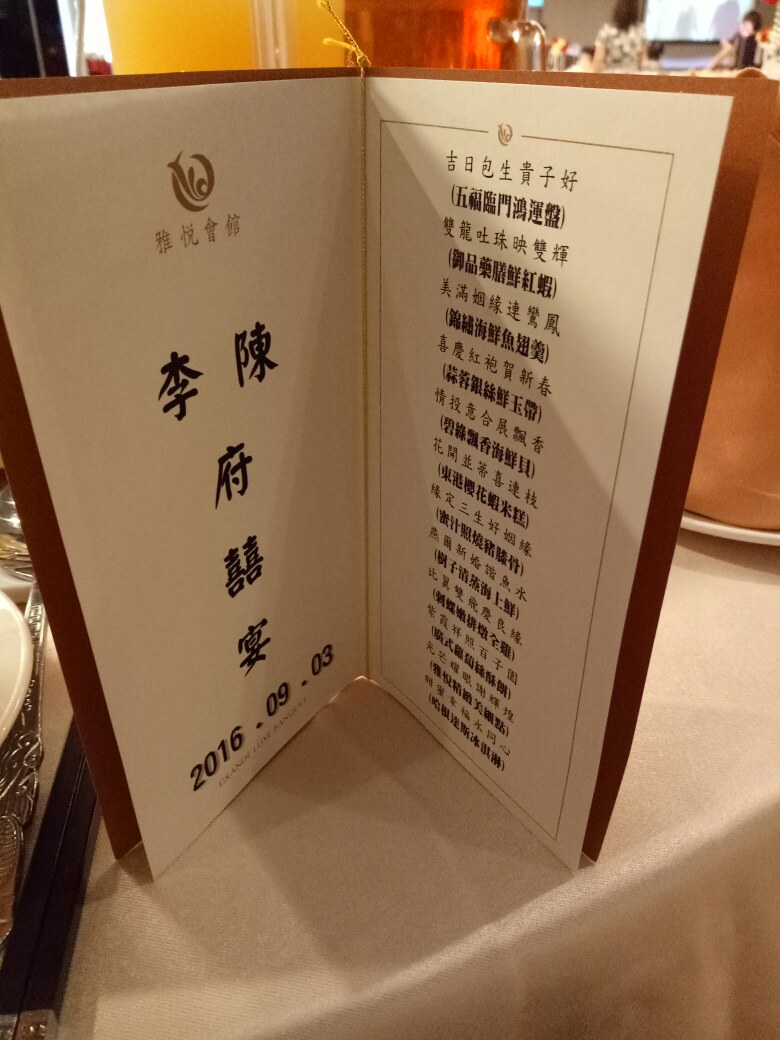 雅悅會館
陳 李
府
囍
宴
2016 . 09 . 03
GRANDE LUXE BANQUET
吉日包生貴子好
(五福臨門鴻運盤)
雙龍吐珠映雙輝
(御品藥膳鮮紅蝦)
美滿姻緣連鸞鳳
(錦繡海鮮魚翅羹)
喜慶紅袍賀新春
(蒜蓉銀絲鮮玉帶)
情投意合展飄香
(碧綠飄香海鮮貝)
花開並蒂喜連枝
(東港櫻花蝦米糕)
緣定三生好姻緣
(蜜汁照燒豬膝骨)
燕爾新婚諧魚水
(樹子清蒸海上鮮)
比翼雙飛慶良緣
(刺蝶嫩排燉全雞)
紫霞祥照百子圖
(廣式蘿蔔絲酥餅)
光芒耀眼謝輝煌
(雅悅精緻美細點)
甜蜜幸福永同心
(哈根達斯冰淇淋)